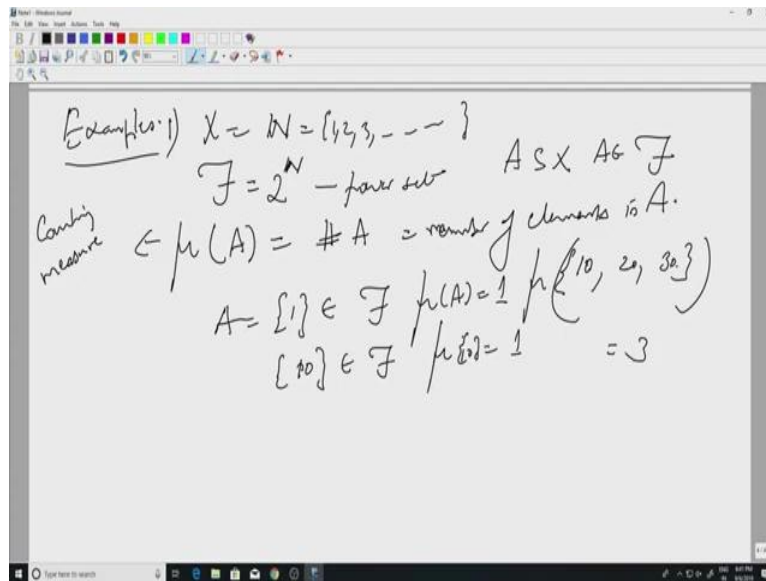 Note1 - Windows Journal
File Edit View Insert Actions Tools Help
Examples: 1) X = ℕ = {1, 2, 3, - - - - }
ℱ = 2^ℕ - power set A ⊆ X A ∈ ℱ
Counting measure ← μ(A) = # A = number of elements in A.
A = {1} ∈ ℱ μ(A) = 1 μ({10, 20, 30})
{10} ∈ ℱ μ{10} = 1 = 3
Type here to search